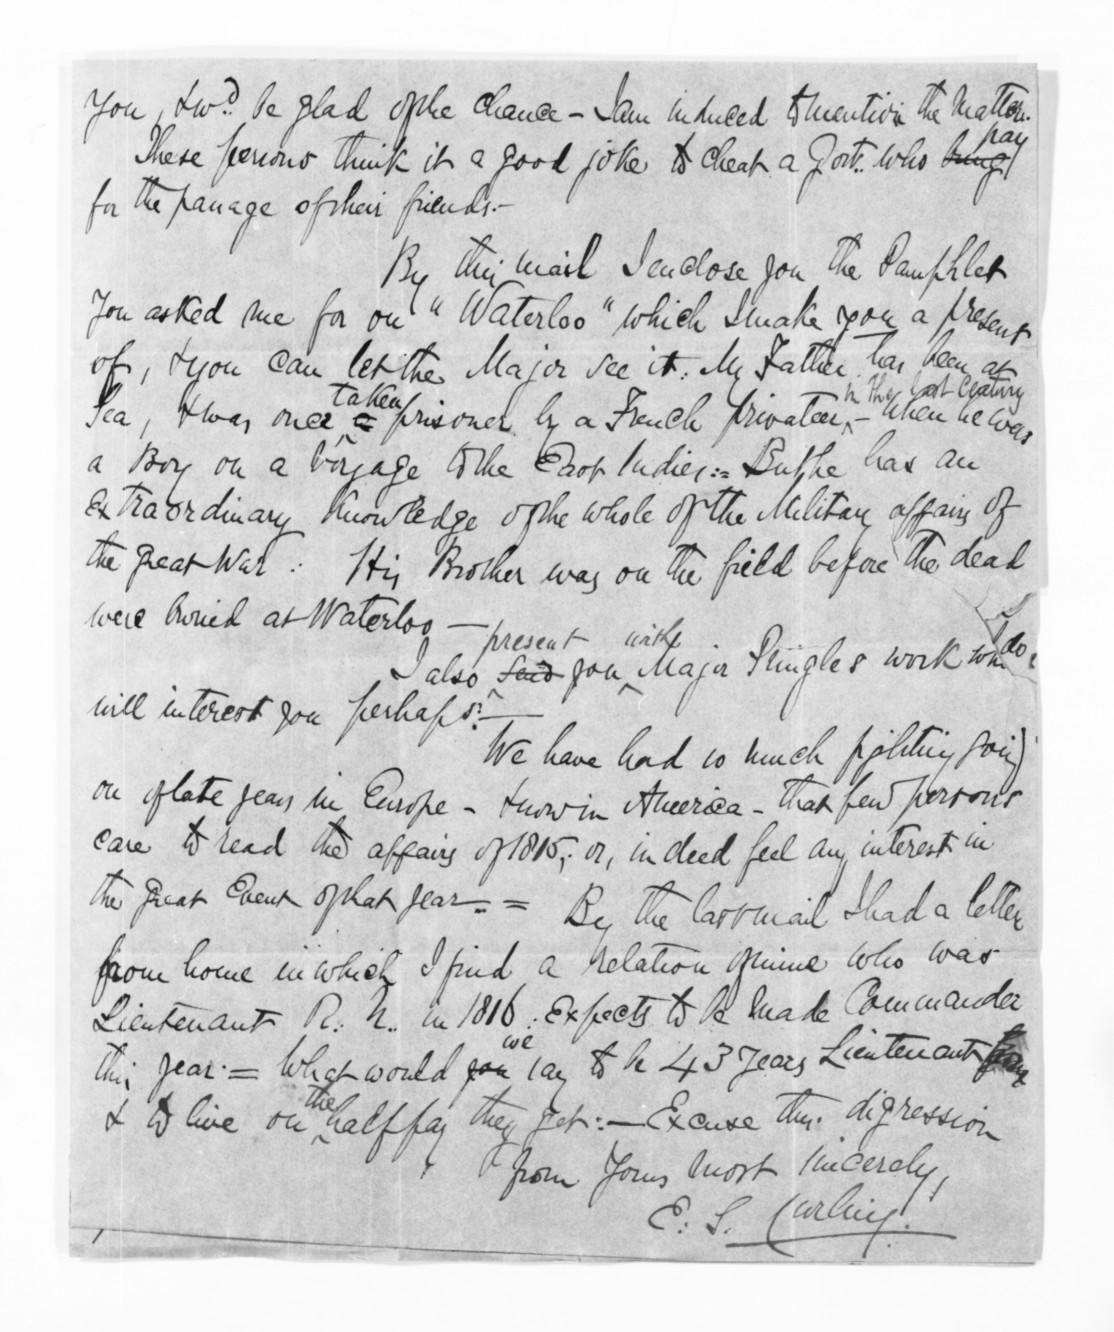 You, & wd. be glad of the chance – I am induced to mention the matter.
These persons think it a good joke to cheat a Govt. who bring pay
for the passage of their friends.–
By this mail I enclose you the Pamphlet
You asked me for on "Waterloo" which I make you a present
of, & you can let the Major see it. My Father has been at
Sea, & was once a taken prisoner by a French privateer, – in the last century when he was
a Boy on a voyage to the East Indies:= But he has an
extraordinary knowledge of the whole of the Military affairs of
the great War. His Brother was on the field before the dead
were buried at Waterloo –
I also send present you with Major Pringles work who do
will interest you perhaps. –
We have had so much fighting going
on of late years in Europe – & now in America – that few persons
care to read the affairs of 1815, or, indeed feel any interest in
the great Event of that year.. = By the last mail I had a letter
from home in which I find a relation of mine who was
Lieutenant R. N. in 1816. Expects to be made Commander
this year. = What would you we say to be 43 years Lieutenant
& to live on the half pay they get:– Excuse this digression
from Yours most sincerely,
E. S. Curling.